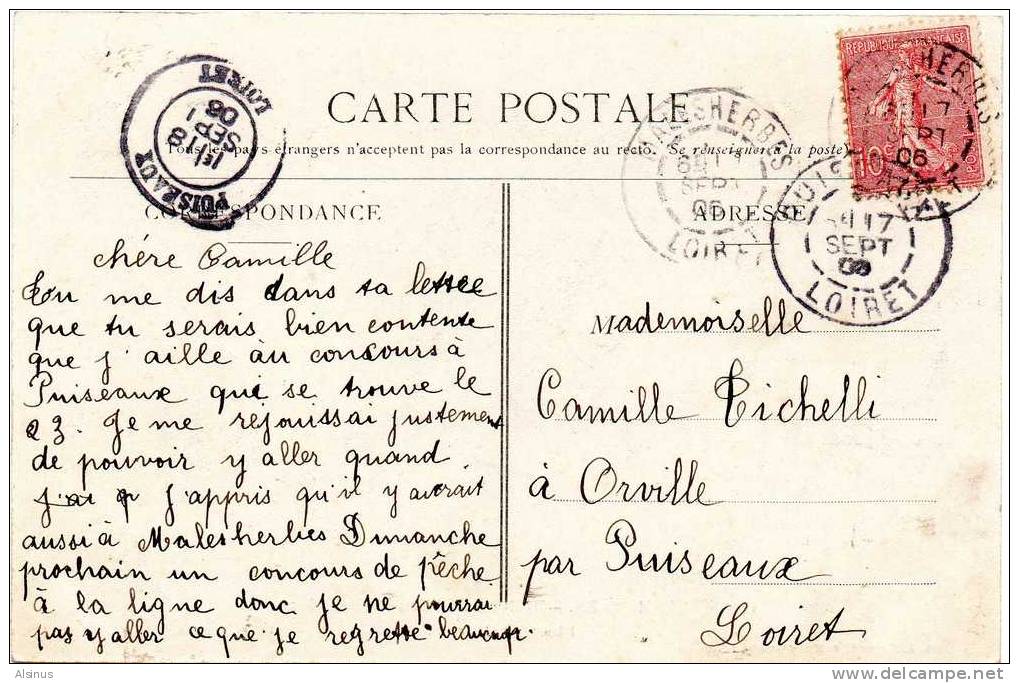 CARTE POSTALE
Tous les pays étrangers n'acceptent pas la correspondance au recto. (Se renseigner à la poste)
CORRESPONDANCE
chére Camille
Tou me dis dans ta lettre
que tu serais bien contente
que j'aille au concours à
Puiseaux qui se trouve le
23. Je me rejouissai justement
de pouvoir y aller quand
j'ai q j'appris qu'il y aurait
aussi à Malesherbes Dimanche
prochain un concours de pêche
à la ligne donc je ne pourrai
pas y aller ce que je regrette beaucoup.
ADRESSE
Mademoiselle
Camille Tichelli
à Orville
par Puiseaux
Loiret
REPUBLIQUE FRANÇAISE
10
POSTES
MALESHERBES
SEPT
06
LOIRET
MALESHERBES
17
SEPT
06
PUISEAUX
17
SEPT
06
LOIRET
PUISEAUX
18
SEPT
06
LOIRET
Alsinus
delcampe.net